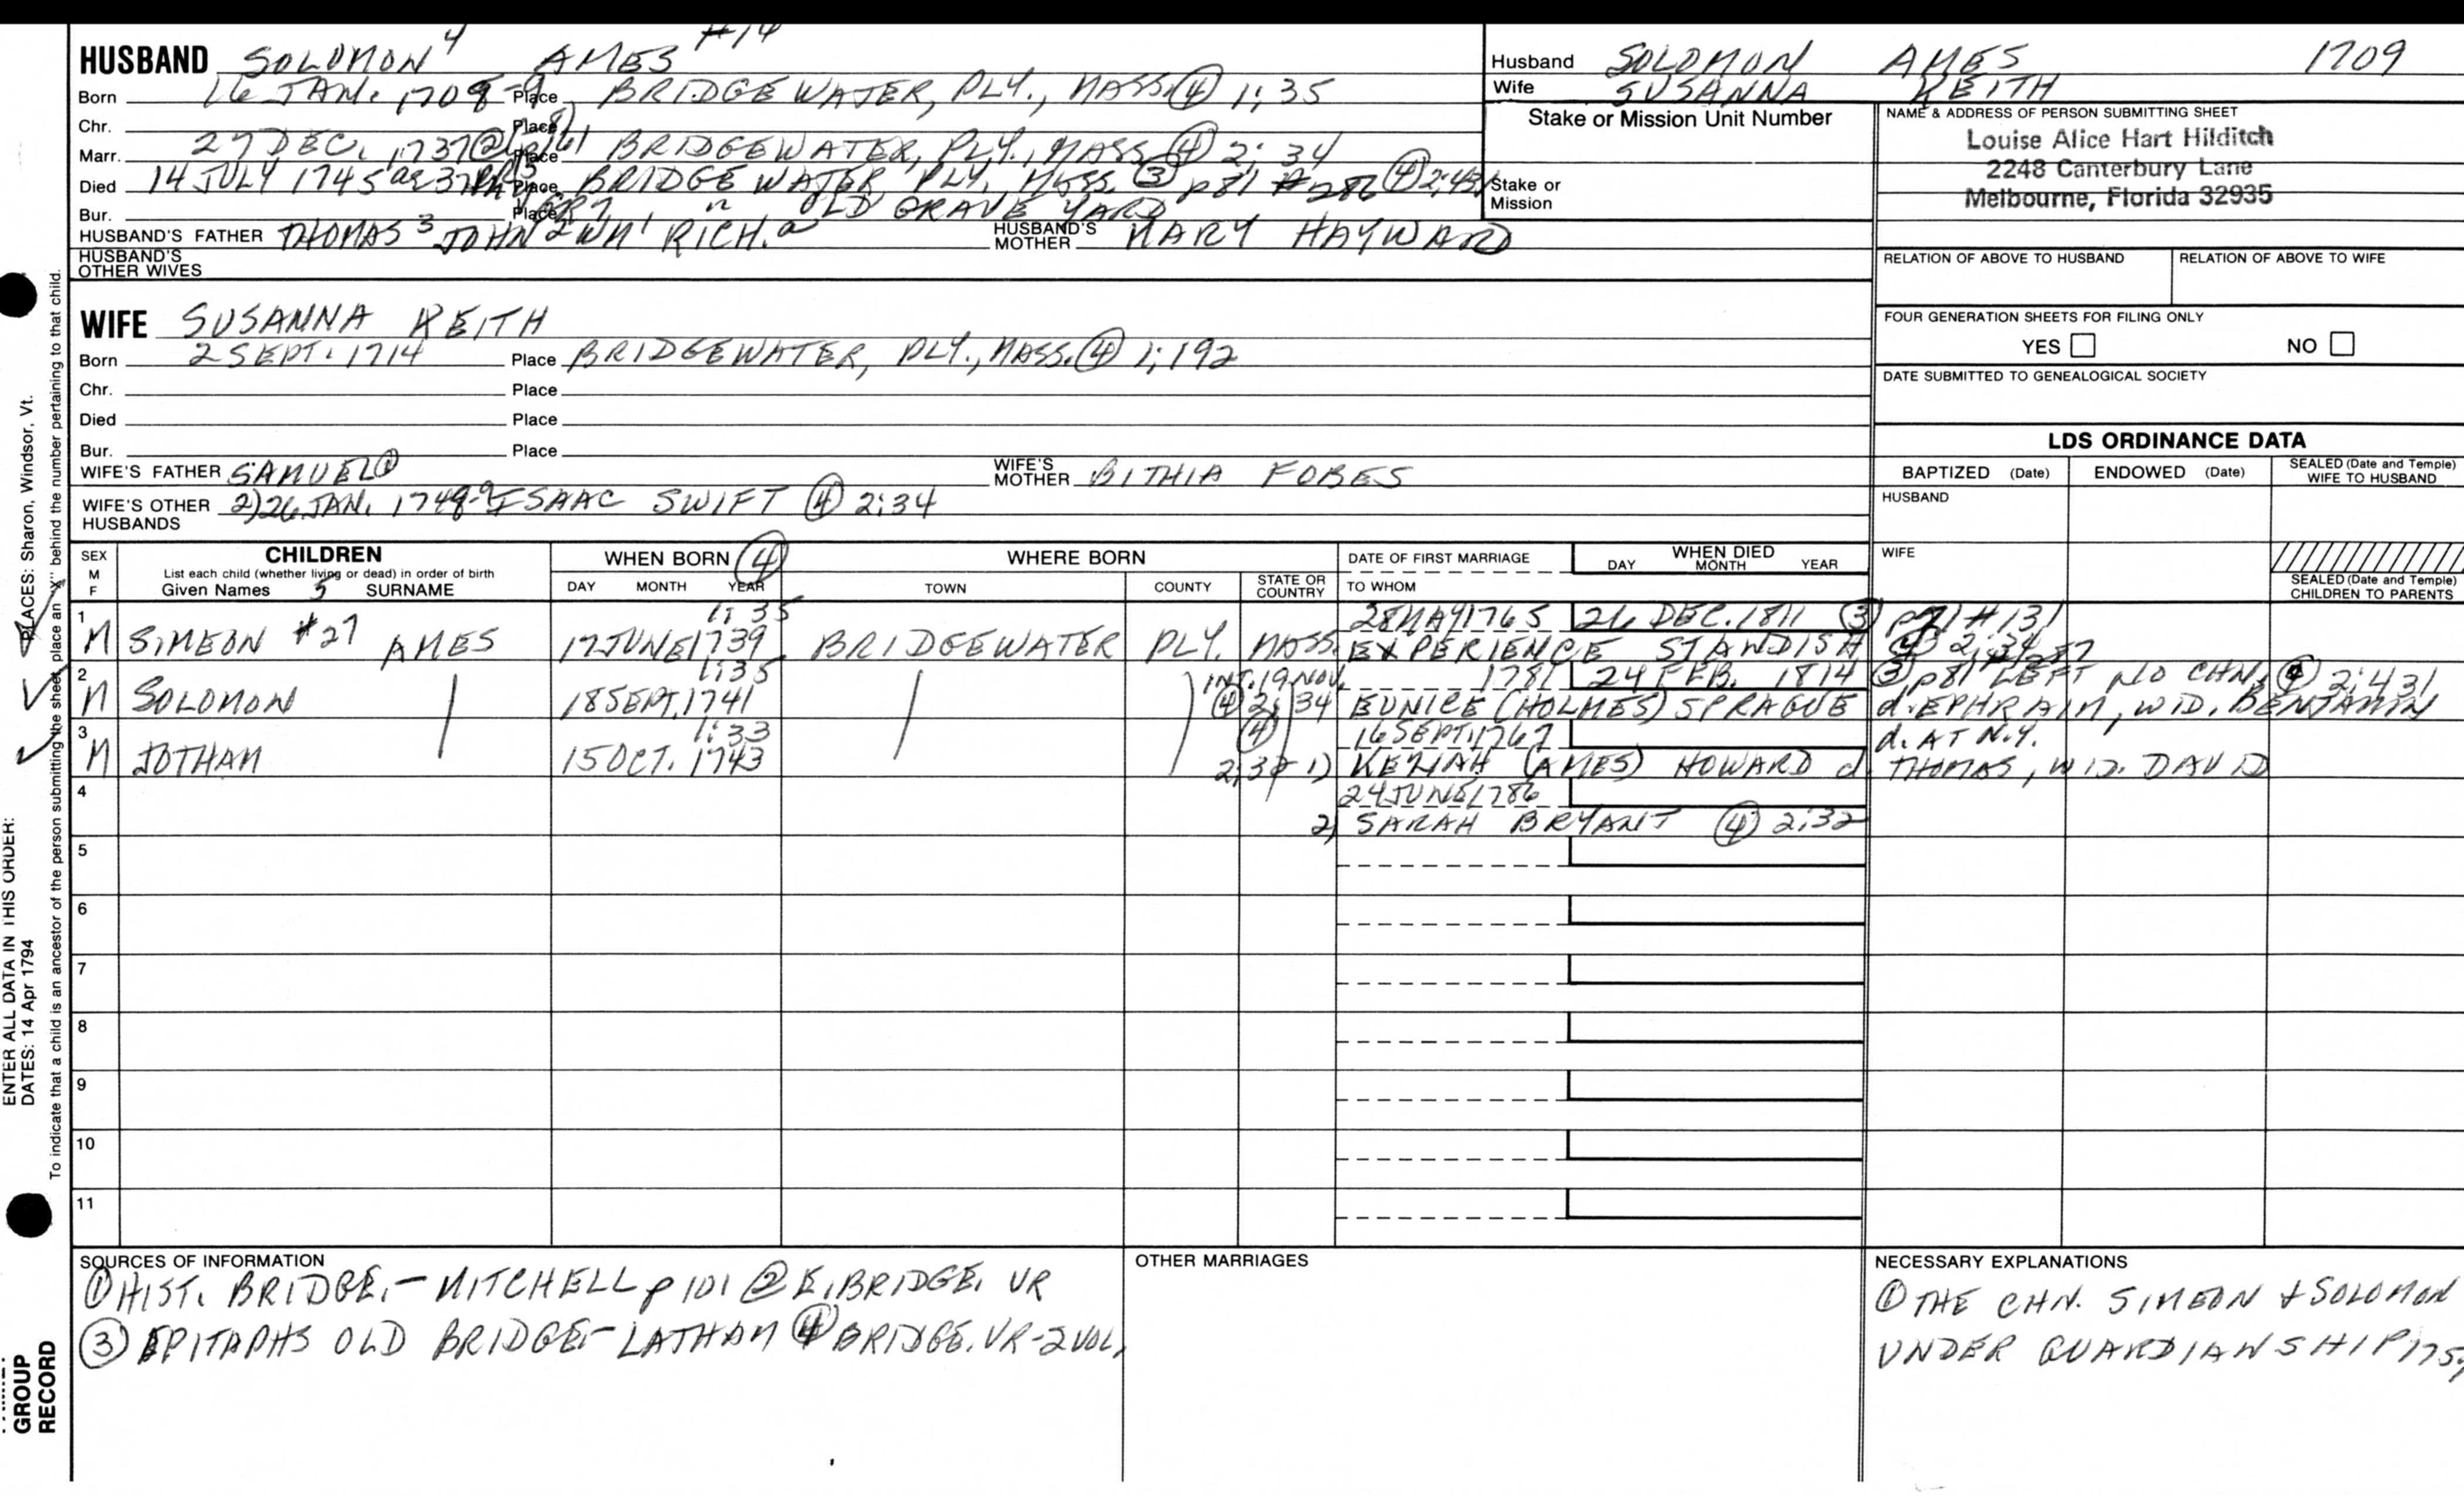 HUSBAND SOLOMON 4 AMES #14
Born 16 JAN. 1708-9 Place BRIDGEWATER, PLY., MASS. ④ 1:35
Chr. Place
Marr. 27 DEC. 1737 Place BRIDGEWATER, PLY., MASS ④ 2:34
Died 14 JULY 1745 ae 37 Place BRIDGEWATER, PLY. MASS. ③ p81 #286 ④ 2:431
Bur. Place " OLD GRAVE YARD
HUSBAND'S FATHER THOMAS 3 JOHN 2 WM 1 RICH. a HUSBAND'S MOTHER MARY HAYWARD
HUSBAND'S OTHER WIVES
Husband SOLOMON AMES 1709
Wife SUSANNA KEITH
Stake or Mission Unit Number
Stake or Mission
NAME & ADDRESS OF PERSON SUBMITTING SHEET
Louise Alice Hart Hilditch
2248 Canterbury Lane
Melbourne, Florida 32935
RELATION OF ABOVE TO HUSBAND RELATION OF ABOVE TO WIFE
FOUR GENERATION SHEETS FOR FILING ONLY
YES NO
DATE SUBMITTED TO GENEALOGICAL SOCIETY
WIFE SUSANNA KEITH
Born 2 SEPT. 1714 Place BRIDGEWATER, PLY., MASS. ④ 1:192
Chr. Place
Died Place
Bur. Place
WIFE'S FATHER SAMUEL ① WIFE'S MOTHER BITHIA FOBES
WIFE'S OTHER HUSBANDS 2) 26 JAN. 1748-9 ISAAC SWIFT ④ 2:34
LDS ORDINANCE DATA
BAPTIZED (Date) ENDOWED (Date) SEALED (Date and Temple) WIFE TO HUSBAND
HUSBAND
WIFE
SEALED (Date and Temple) CHILDREN TO PARENTS
SEX M F CHILDREN WHEN BORN ④ WHERE BORN DATE OF FIRST MARRIAGE WHEN DIED
List each child (whether living or dead) in order of birth
Given Names 5 SURNAME DAY MONTH YEAR TOWN COUNTY STATE OR COUNTRY TO WHOM DAY MONTH YEAR
1 1:35 28 MAY 1765 26 DEC. 1811 ③ p71 #131
M SIMEON #27 AMES 17 JUNE 1739 BRIDGEWATER PLY. MASS. EXPERIENCE STANDISH ④ 2:34
2 1:35 INT. 19 NOV. 1781 24 FEB. 1814 ③ p81 LEFT NO CHN. ④ 2:431
M SOLOMON 18 SEPT. 1741 ④ 2:34 EUNICE (HOLMES) SPRAGUE d. EPHRAIM, WID. BENJAMIN
3 1:33 ④ 16 SEPT. 1767 d. AT N.Y.
M JOTHAM 15 OCT. 1743 1) KEZIAH (AMES) HOWARD d. THOMAS, WID. DAVID
4 24 JUNE 1786
2) SARAH BRYANT ④ 2:32
5
6
7
8
9
10
11
SOURCES OF INFORMATION
① HIST. BRIDGE.- MITCHELL p 101 ② E. BRIDGE. VR
③ EPITAPHS OLD BRIDGE.- LATHAM ④ BRIDGE. VR-2 VOL.
OTHER MARRIAGES
NECESSARY EXPLANATIONS
① THE CHN. SIMEON & SOLOMON
UNDER GUARDIANSHIP
PLACES: Sharon, Windsor, Vt.
ENTER ALL DATA IN THIS ORDER:
DATES: 14 Apr 1794
To indicate that a child is an ancestor of the person submitting the sheet, place an "X" behind the number pertaining to that child.
GROUP
RECORD